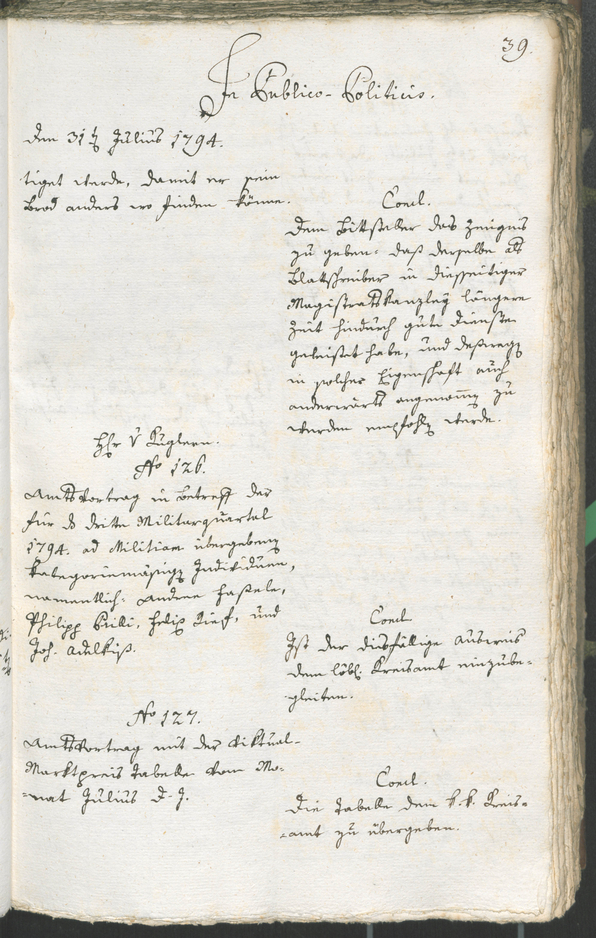 39.
In Publico-Politicis.
Den 31t Julius 1794.
tiget werde, damit er sein
Brod anders wo finden könne.
Concl.
Dem Bittsteller das Zeugnis
zu geben: daß derselbe als
Blattschreiber in diesseitiger
Magistratskanzley längere
Zeit hindurch gute Dienste
geleistet habe, und deßweg
in solcher Eigenschaft auch
anderwärts angenomm zu
werden empfohl werde.
Hr v Kuglern.
No 126.
Amtsvortrag in Betreff der
für das dritte Militarquartal
1794. ad Militiam übergeben
kategoriemäßig Individuen,
namentlich: Andree
Philipp Felix und
Joh.
Concl.
Ist der diesfällige Ausweis
dem löbl. Kreisamt einzube-
gleiten.
No 127.
Amtsvortrag mit der Viktual-
Marktpreis Tabelle vom Mo-
-nat Julius d. J.
Concl.
Die Tabelle dem k. k. Kreis-
-amt zu übergeben.